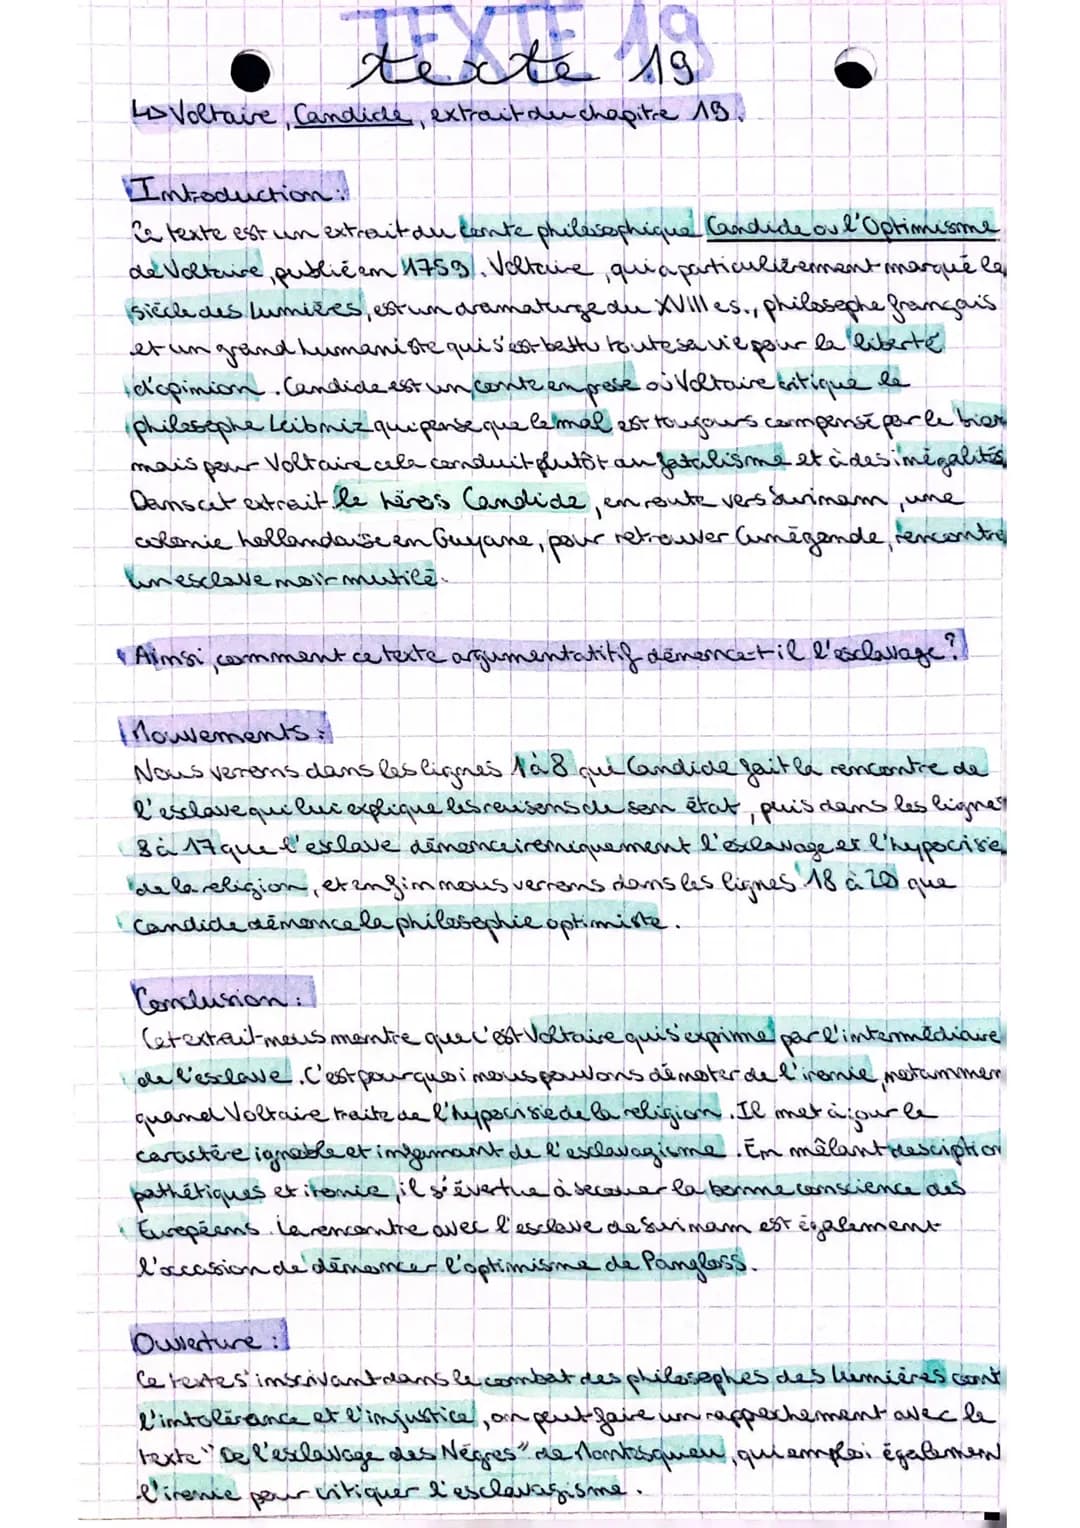 TEXTE 19
texte 19
↳ Voltaire, Candide, extrait du chapitre 19.
Introduction :
Ce texte est un extrait du conte philosophique Candide ou l'Optimisme
de Voltaire, publié en 1759. Voltaire, qui a particulièrement marqué le
siècle des Lumières, est un dramaturge du XVIII es., philosophe français
et un grand humaniste qui s'est battu toute sa vie pour la liberté
d'opinion. Candide est un conte en prose où Voltaire critique le
philosophe Leibniz qui pense que le mal est toujours compensé par le bien
mais pour Voltaire cela conduit plutôt au fatalisme et à des inégalités.
Dans cet extrait le héros Candide, en route vers Surinam, une
colonie hollandaise en Guyane, pour retrouver Cunégonde, rencontre
un esclave noir mutilé.
Ainsi, comment ce texte argumentatitif dénonce-t-il l'esclavage ?
Mouvements :
Nous verrons dans les lignes 1 à 8 que Candide fait la rencontre de
l'esclave qui lui explique les raisons de son état, puis dans les lignes
8 à 17 que l'esclave dénonce ironiquement l'esclavage et l'hypocrisie
de la religion, et enfin nous verrons dans les lignes 18 à 20 que
Candide dénonce la philosophie optimiste.
Conclusion :
Cet extrait nous montre que c'est Voltaire qui s'exprime par l'intermédiaire
de l'esclave. C'est pourquoi nous pouvons dénoter de l'ironie, notammen
quand Voltaire traite de l'hypocrisie de la religion. Il met à jour le
caractère ignoble et infamant de l'esclavagisme. En mêlant description
pathétiques et ironie, il s'évertue à secouer la bonne conscience des
Européens. La rencontre avec l'esclave de Surinam est également
l'occasion de dénoncer l'optimisme de Pangloss.
Ouverture :
Ce texte s'inscrivant dans le combat des philosophes des Lumières cont
l'intolérance et l'injustice, on peut faire un rapprochement avec le
texte "De l'esclavage des Nègres" de Montesquieu, qui emploi égalemen
l'ironie pour critiquer l'esclavagisme.